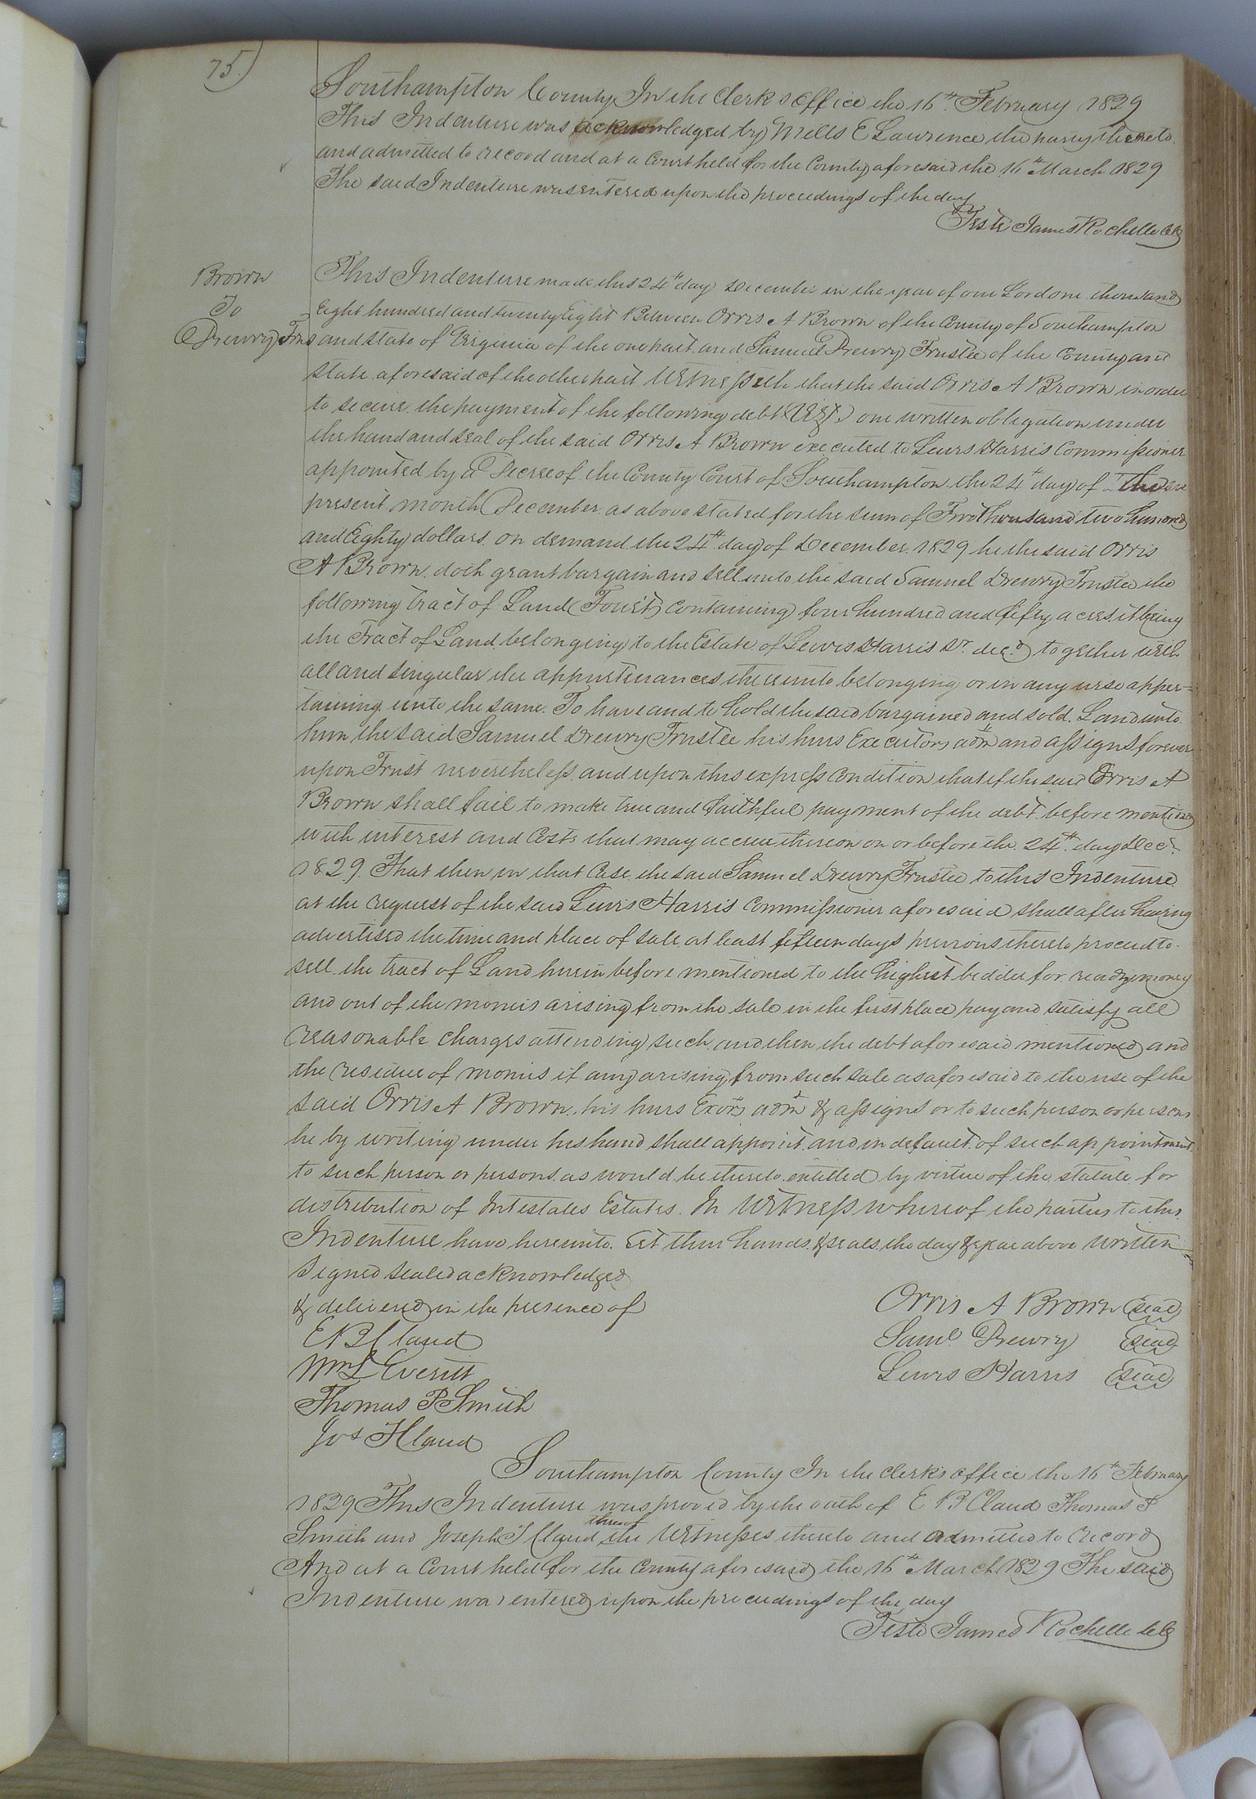 75)
Southampton County In the Clerks Office the 16th February 1829
This Indenture was acknowledged by Mills E Lawrence the party thereto
and admitted to record and at a Court held for the County aforesaid the 16th March 1829
The said Indenture was entered upon the proceedings of the day
Teste James Rochelle Clk
Brown
To
Drewry Trus
This Indenture made this 24th day December in the year of our Lord one thousand
Eight hundred and twenty Eight Between Orris A Brown of the County of Southampton
and State of Virginia of the one part and Samuel Drewry Trustee of the County and
State aforesaid of the other part Witnesseth that the said Orris A Brown in order
to secure the payment of the following debt one written obligation under
the hand and seal of the said Orris A Brown executed to Lewis Harris Commissioner
appointed by a Decree of the County Court of Southampton the 24th day of the
present month December as above stated for the sum of Two thousand two hundred
and Eighty dollars. on demand the 24th day of December 1829 he the said Orris
A Brown. doth grant bargain and sell unto the said Samuel Drewry Trustee the
following Tract of Land containing four hundred and fifty acres it being
the Tract of Land belonging to the Estate of Lewis Harris Sr. decd together with
all and singular the appurtenances thereunto belonging or in any wise apper=
taining unto the same. To have and to hold the said bargained and sold Land unto
him the said Samuel Drewry Trustee his heirs Executors admr and assigns forever
upon Trust nevertheless and upon this express condition that if the said Orris A
Brown shall fail to make true and faithful payment of the debt before mentioned
with interest and Costs that may accrue thereon on or before the 24th day Decr
1829. That then in that Case the said Samuel Drewry Trustee to this Indenture
at the request of the said Lewis Harris Commissioner aforesaid shall after having
advertised the time and place of sale at least fifteen days previous thereto proceed to
sell the tract of Land herein before mentioned to the highest bidder for ready money
and out of the monies arising from the sale in the first place pay and satisfy all
reasonable charges attending such. and then the debt aforesaid mentioned and
the residue of monies if any arising from such sale as aforesaid to the use of the
said Orris A Brown. his heirs Exors admr & assigns or to such person or persons
he by writing under his hand shall appoint and in default of such appointment
to such person or persons as would be thereto entitled by virtue of the statute for
distribution of Intestates Estates. In Witness whereof the parties to this
Indenture have hereunto. Set their hands & seals the day & year above written
Signed sealed acknowledged
& delivered in the presence of
Orris A Brown (seal)
E B Claud
Saml Drewry (seal)
Wm L Everitt
Lewis Harris (seal)
Thomas P Smith
Jos T Claud
Southampton County In the Clerk's office the 16th February
1829 This Indenture was proved by the oath of E B Claud Thomas P
Smith and Joseph T Claud three of the Witnesses thereto and admitted to record
And at a Court held for the County aforesaid the 16th March 1829 The said
Indenture was entered upon the proceedings of the day
Teste James Rochelle Clk